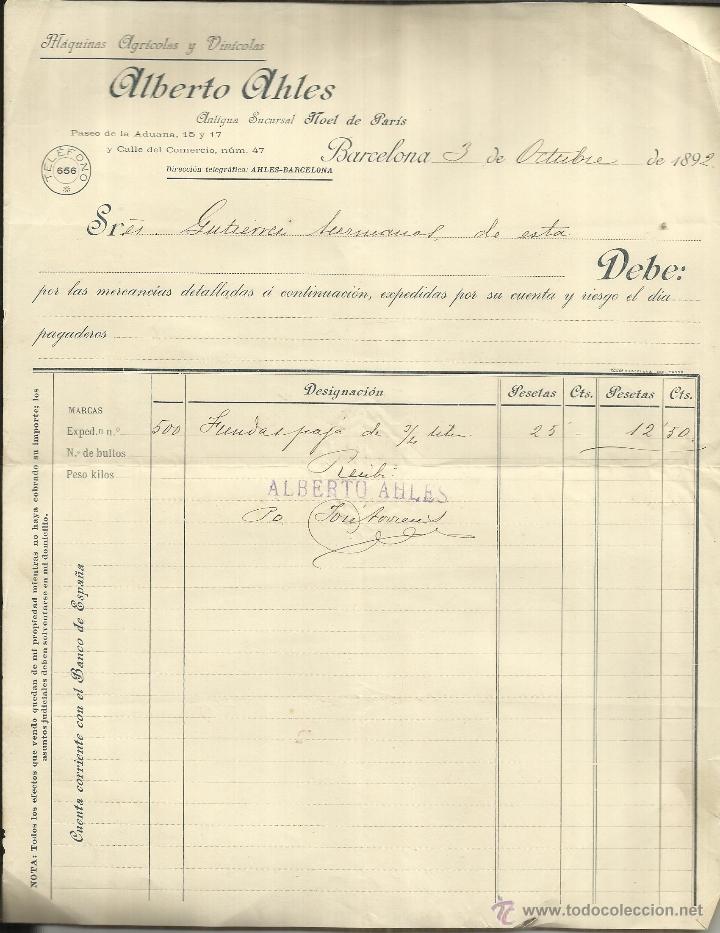 Máquinas Agrícolas y Vinícolas
Alberto Ahles
Antigua Sucursal Noel de París
Paseo de la Aduana, 15 y 17
y Calle del Comercio, núm. 47
Dirección telegráfica: AHLES-BARCELONA
TELÉFONO
656
Barcelona 3 de Octubre de 1892
Sres. Gutierrez hermanos, de esta
Debe:
por las mercancías detalladas á continuación, expedidas por su cuenta y riesgo el día
pagaderos
Designación Pesetas Cts. Pesetas Cts.
MARCAS
Exped.n n.º 500 Fundas paja de 3/4 litro 25 - 12 50
N.º de bultos
Peso kilos
Recibí
ALBERTO AHLES
Po
Cuenta corriente con el Banco de España
NOTA: Todos los efectos que vendo quedan de mi propiedad mientras no haya cobrado su importe; los
asuntos judiciales deben solventarse en mi domicilio.
www.todocoleccion.net